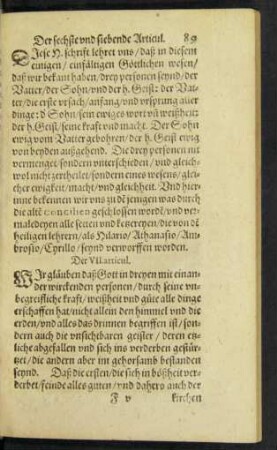 Der sechste vnd siebende Articul. 89
DJese H. schrifft lehret vns / daß in diesem
einigen / einfältigen Göttlichen wesen /
daß wir bekant haben / drey personen seynd / der
Vatter / der Sohn / vnd der h. Geist: der Vat-
ter / die erste vrsach / anfang / vnd vrsprung aller
dinge: d' Sohn / sein ewiges wort vñ weißheit:
der h. Geist / seine krafft vnd macht. Der Sohn
ewig vom Vatter gebohren / der h. Geist ewig
von beyden außgehend. Die drey personen nit
vermenget / sondern vnterschieden / vnd gleich-
wol nicht zertheilet / sondern eines wesens / glei-
cher ewigkeit / macht / vnd gleichheit. Vnd hier-
inne bekennen wir vns zu dē jenigen was durch
die altē concilien geschlossen wordē / vnd ver-
maledeyen alle secten vnd ketzereyen / die von dē
heiligen lehrern / als Hilario / Athanasio / Am-
brosio / Cyrillo / seynd verworffen worden.
Der VII. articul.
WJr gläuben daß Gott in dreyen mit einan-
der wirckenden personen / durch seine vn-
begreifliche kraft / weißheit vnd güte alle dinge
erschaffen hat / nicht allein den himmel vnd die
erden / vnd alles das drinnen begriffen ist / son-
dern auch die vnsichtbaren geister / deren etz-
liche abgefallen vnd sich ins verderben gestür-
tzet / die andern aber im gehorsamb bestanden
seynd. Daß die ersten / die sich in bößheit ver-
derbet / feinde alles guten / vnd dahero auch der
F v kirchen